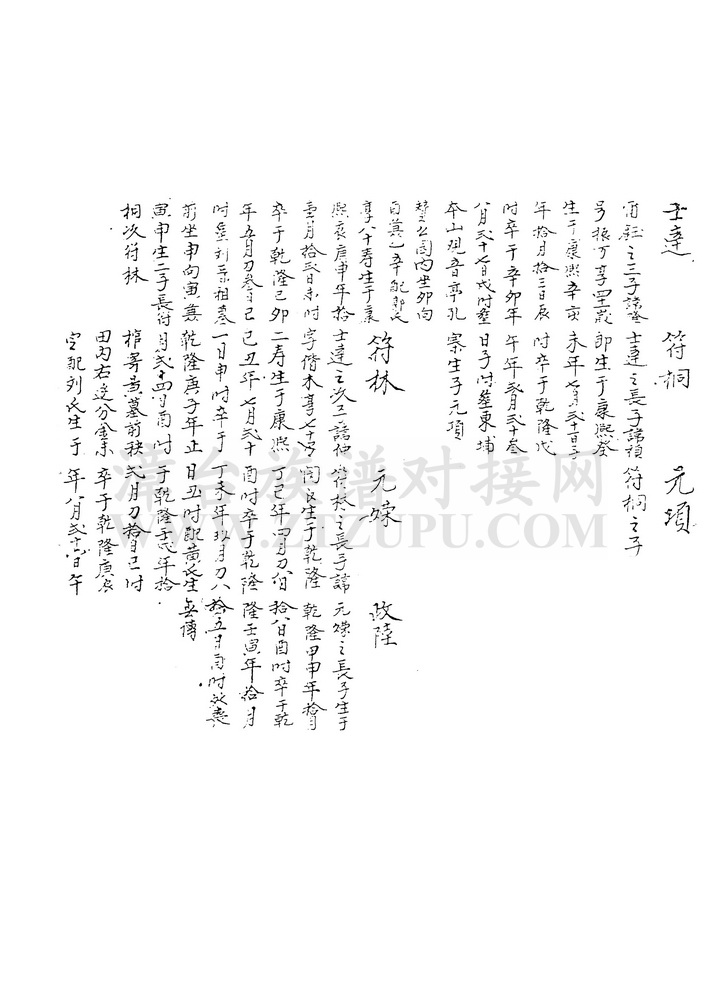 士達
之三子諱隆
号振万享四歲
生于康熙辛亥
年拾月拾三日辰
时卒于辛卯年
八月弍十七日戌时塟
本山观音亭孔
贊公園内坐卯向
酉兼乙辛配郭氏
享八十寿生于康
熙庚申年拾
壹月拾弍日未时
卒于乾隆己卯
年五月初叁日己
时塟刘家祖墓
前坐申向寅兼
寅申生二子長符
桐次符林
符桐
士達之長子諱禎
即生于康熙癸
未年七月弍十日子
时卒于乾隆戊
午年弍月弍十叁
日子时塟東埔
寨生子元項
符林
士達之次子諱仲
字偕木享七十
二寿生于康熙
己丑年七月弍十
一日申时卒于
乾隆庚子年正
月弍十四日酉时
棺寄黄墓前秧
田内右边分金未
定配刘氏生于
元項
符桐之子
元嶸
符林之長子諱
閣良生于乾隆
丁巳年四月初八日
酉时卒于乾隆
丁未年玖月初八
日丑时配黄氏生
于乾隆壬戌年拾
弍月初拾日巳时
卒于乾隆庚辰
年八月弍十八日午
政陸
元嶸之長子生于
乾隆甲申年拾月
拾八日酉时卒于乾
隆壬寅年拾月
拾五日酉时喪
無傳
漳台族谱对接网
WWW.ZTZUPU.COM